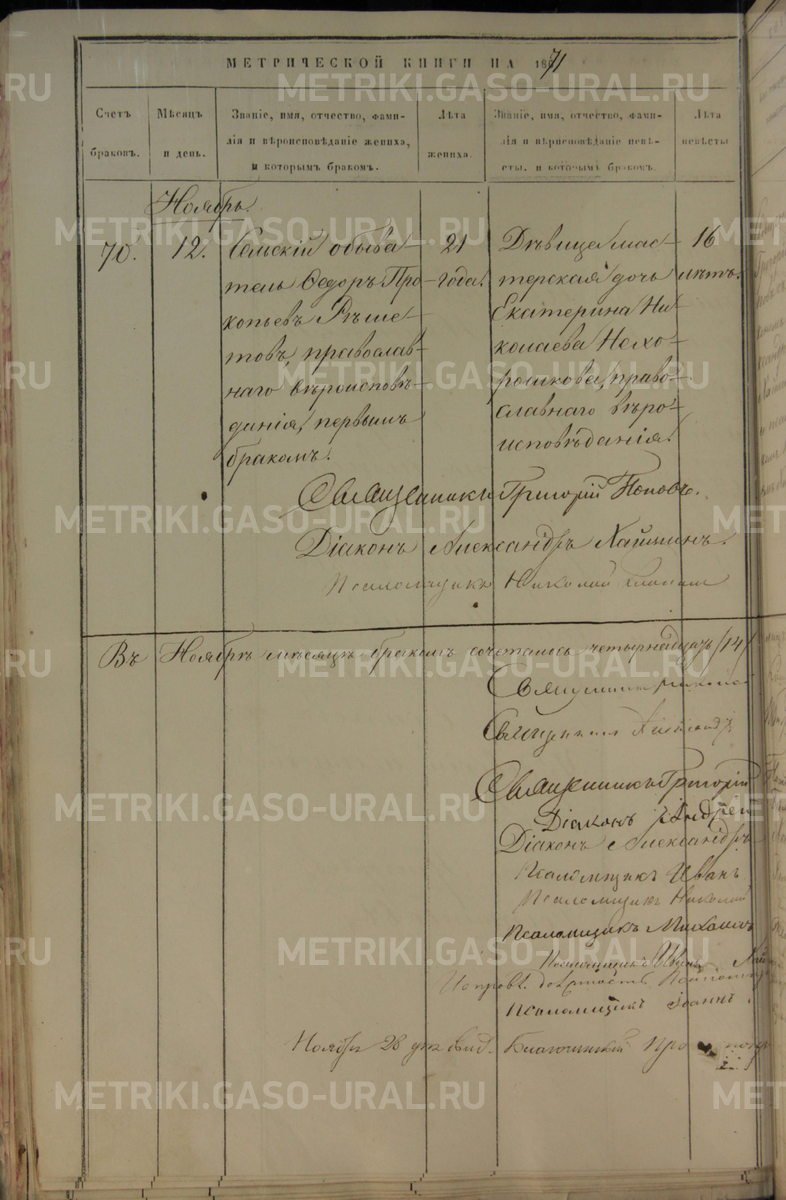 МЕТРИЧЕСКОЙ КНИГИ НА 1871
Счетъ браковъ.
Мѣсяцъ и день.
Званіе, имя, отчество, фамилія и вѣроисповѣданіе жениха, и которымъ бракомъ.
Лѣта жениха.
Званіе, имя, отчество, фамилія и вѣроисповѣданіе невѣсты, и которымъ бракомъ.
Лѣта невѣсты
Ноябрь.
70.
12.
Сельскій обыва-
тель Ѳедоръ Про-
копьевъ Рѣше-
товъ, православ-
наго вѣроисповѣ-
данія, первымъ
бракомъ.
21
года.
Дѣвица, мас-
терская дочь
Екатерина Ни-
колаева Нехо-
рошкова, право-
славнаго вѣро-
исповѣданія.
16
лѣтъ.
Священникъ Григорій Поповъ.
Діаконъ Александръ
Псаломщикъ Николай
Въ Ноябрѣ мѣсяцѣ бракомъ сочеталось четырнадцать /14/
Священникъ
Священникъ
Священникъ Григорій
Діаконъ Андрей
Діаконъ Александръ
Псаломщикъ Иванъ
Псаломщикъ Николай
Псаломщикъ Михаилъ
Псаломщикъ
Псаломщикъ Іоаннъ
Ноября 28 дня Благочинный
METRIKI.GASO-URAL.RU